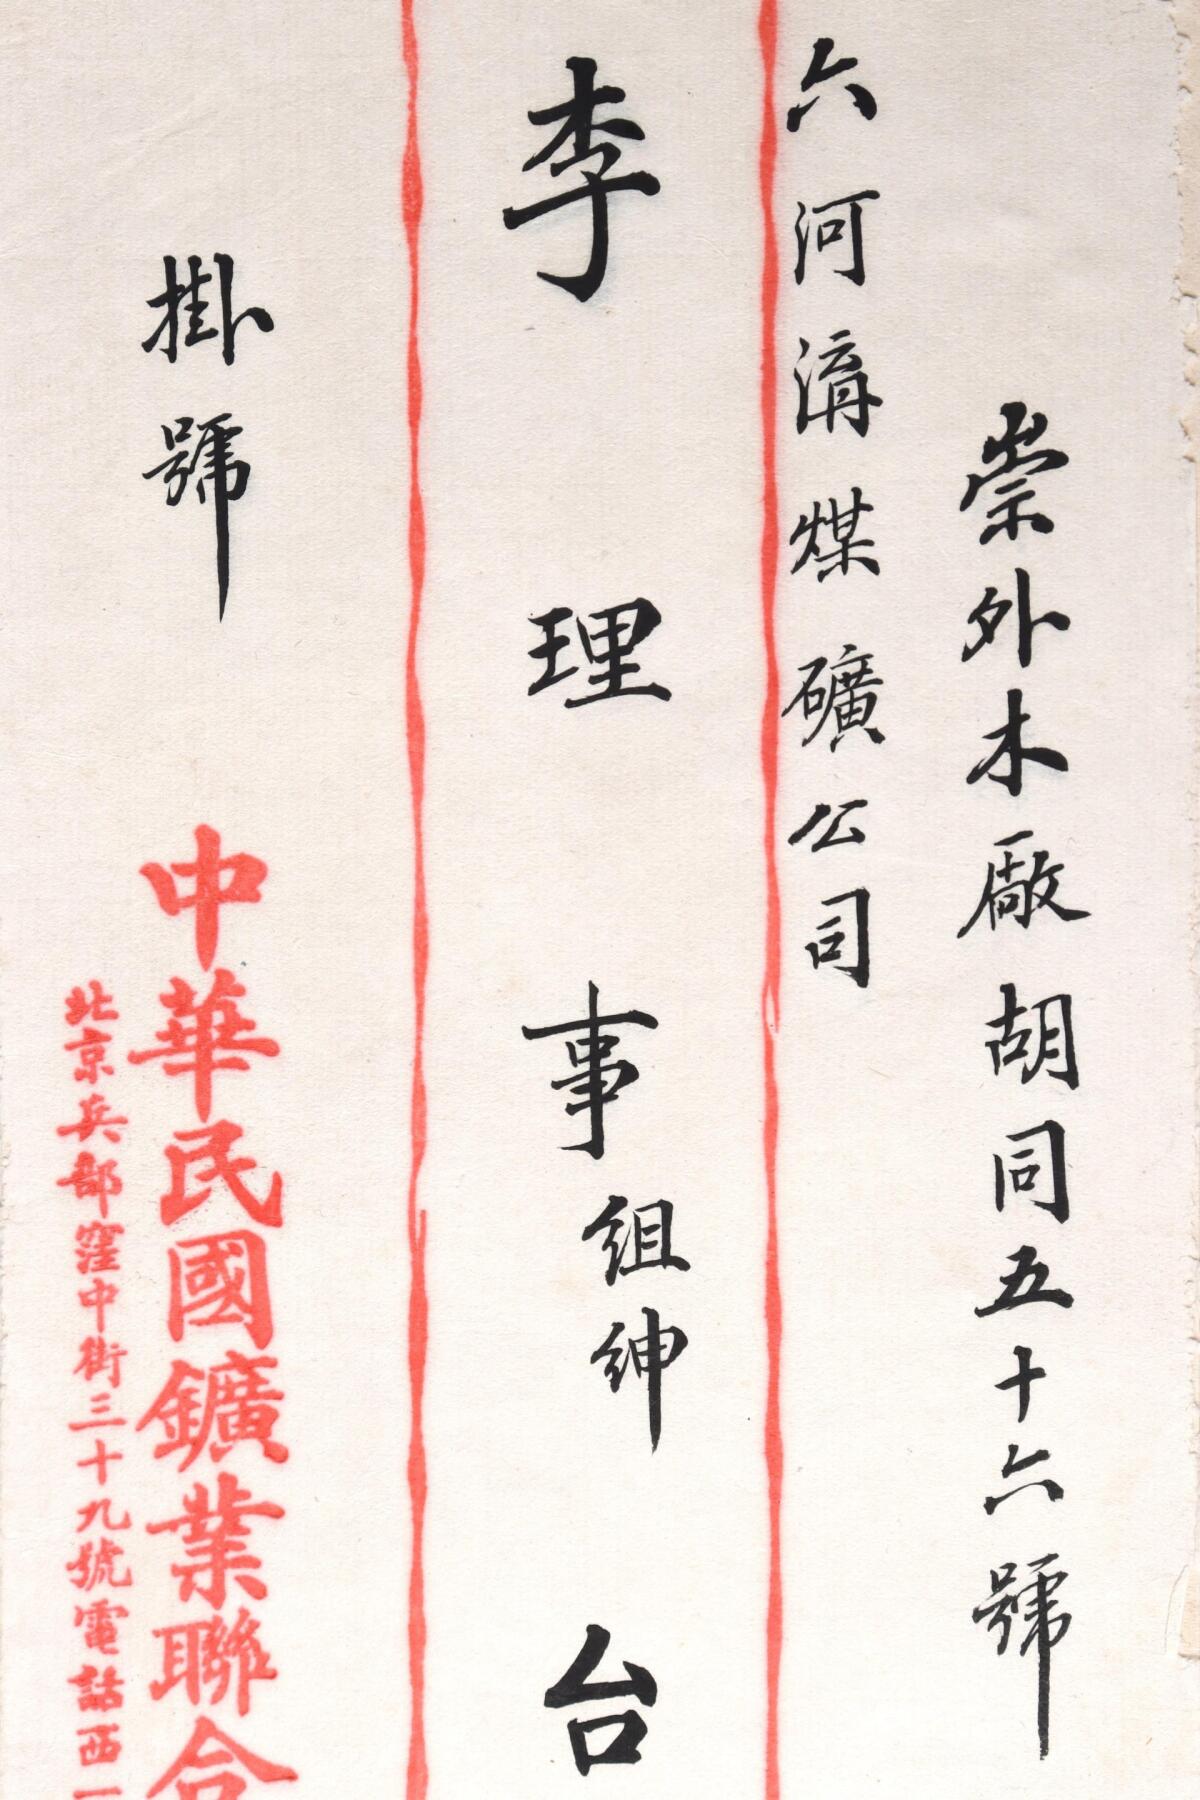 崇外木廠胡同五十六號
六河溝煤礦公司
李理事組紳台
掛號
中華民國鑛業聯合
北京兵部窪中街三十九號電話西一